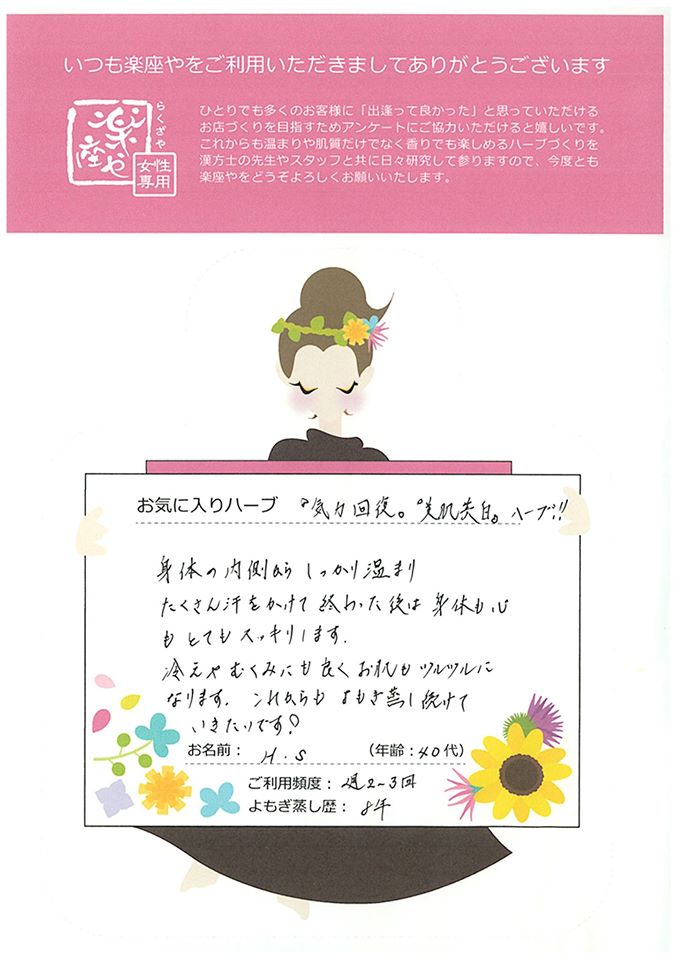 いつも楽座やをご利用いただきましてありがとうございます
らくざや
楽座や
女性専用
ひとりでも多くのお客様に「出逢って良かった」と思っていただける
お店づくりを目指すためアンケートにご協力いただけると嬉しいです。
これからも温まりや肌質だけでなく香りでも楽しめるハーブづくりを
漢方士の先生やスタッフと共に日々研究して参りますので、今度とも
楽座やをどうぞよろしくお願いいたします。
お気に入りハーブ 『気力回復。『美肌美白』ハーブ!!
身体の内側から しっかり温まり
たくさん汗をかけて 終わった後は 身体も心
も とても スッキリします.
冷えや むくみにも 良く お肌も ツルツルに
なります. これからも よもぎ蒸し続けて
いきたいです!
お名前: H.S (年齢:40代)
ご利用頻度:週2~3回
よもぎ蒸し歴: 8年